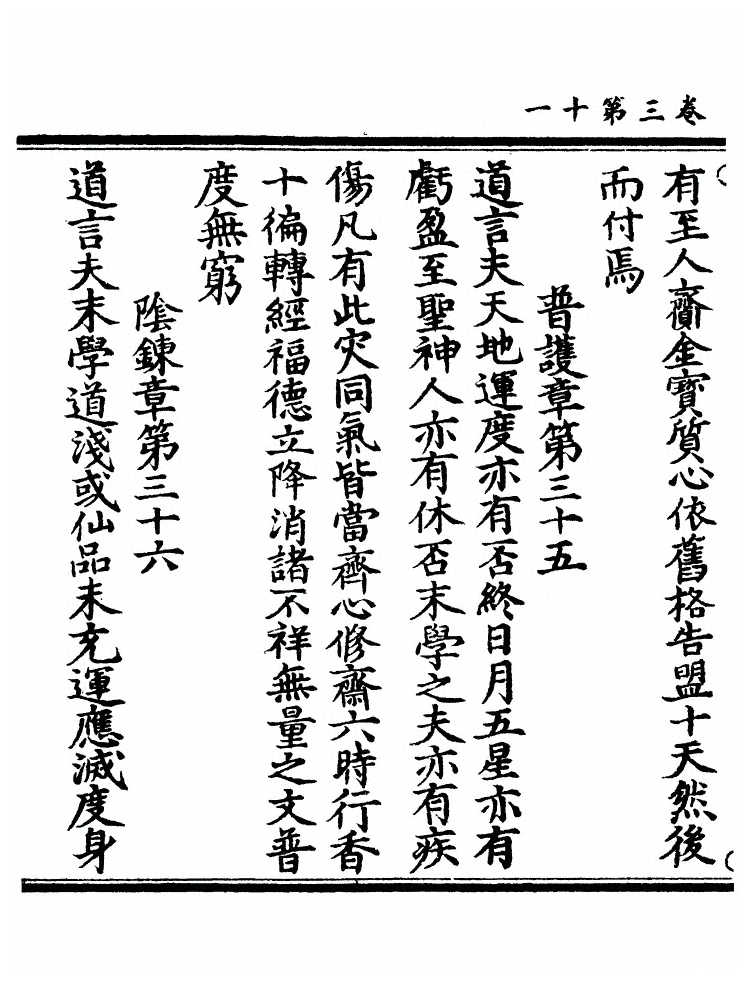 卷三第十一
有至人齎金寶質心依舊格告盟十天然後
而付焉
普護章第三十五
道言夫天地運度亦有否終日月五星亦有
虧盈至聖神人亦有休否末學之夫亦有疾
傷凡有此灾同氣皆當齊心修齋六時行香
十徧轉經福德立降消諸不祥無量之文普
度無窮
陰鍊章第三十六
道言夫末學道淺或仙品未充運應滅度身